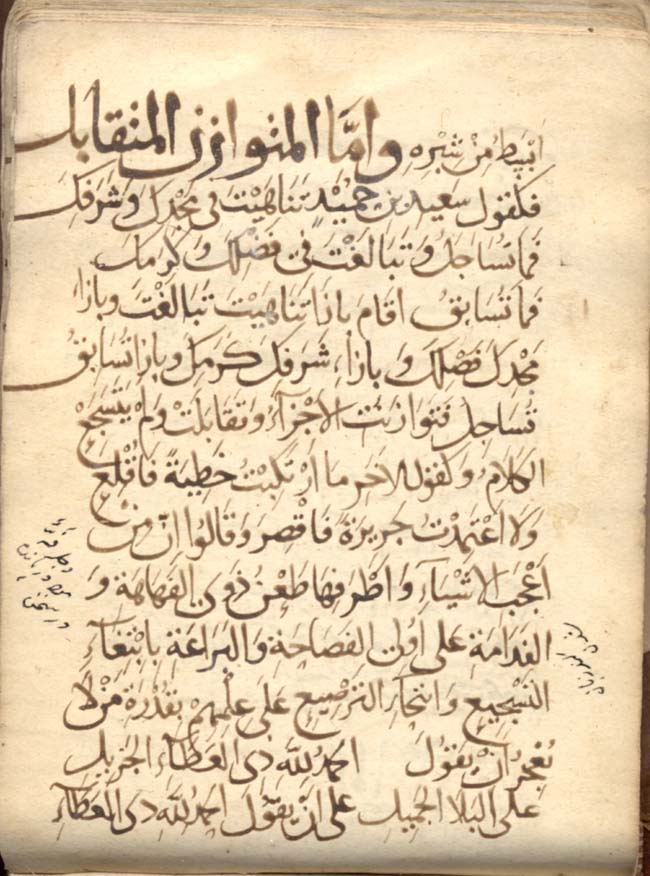 انبسط من شبره وامّا المتوازن المتقابل
فكقول سعيد بن حميد تناهيت في مجدك وشرفك
فما تساجل وتبالغت في فضلك وكرمك
فما تسابق اقام بازا تناهيت تبالغت وبازا
مجدك فضلك وبازاء شرفك كرمك وبازا تسابق
تساجل فتوازنت الاجزآء وتقابلت ولم يتسجع
الكلام وكقول الاخر ما ارتكبت خطية فاقلع
ولا اعتمدت جريرة فاقصر وقالوا انّ من
اعجب الاشيآء واظرفها طعن ذوى الفهاهة و
الفدامة على اولى الفصاحة والبراعة بابتغآء
التسجيع وانتحآء الترصيع على علمهم بقدرة من لا
يعجز ان يقول الحمد لله ذى العطآء الجزيل
على البلا الجميل على ان يقول الحمد لله ذى العطآء